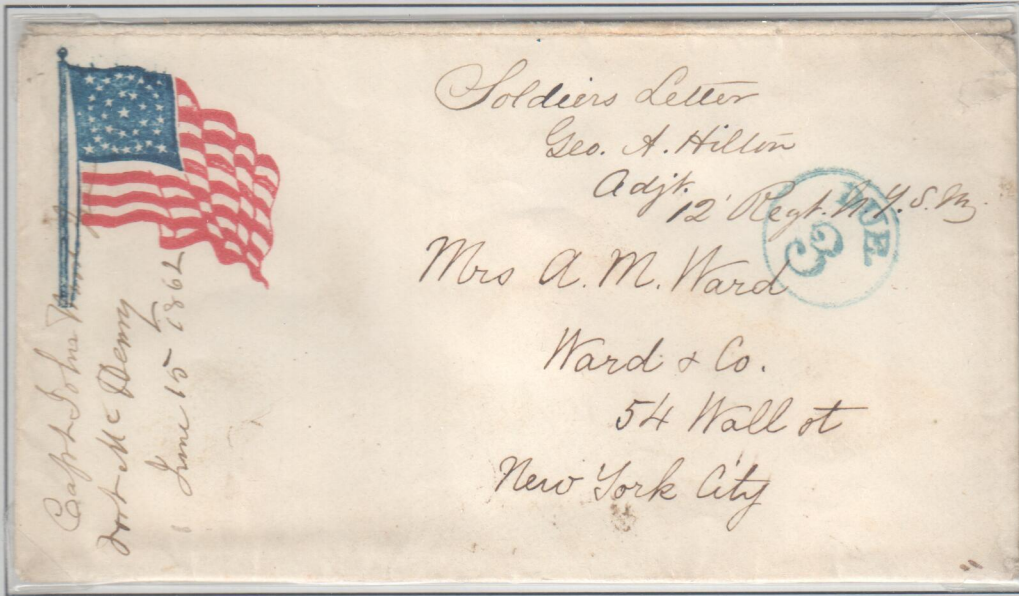 Soldiers Letter
Geo. A. Hilton
Adjt.
12' Regt. N.Y.S.M.
DUE
3
Mrs A. M. Ward
Ward & Co.
54 Wall st
New York City
Capt John
Fort McHenry
June 15 1862